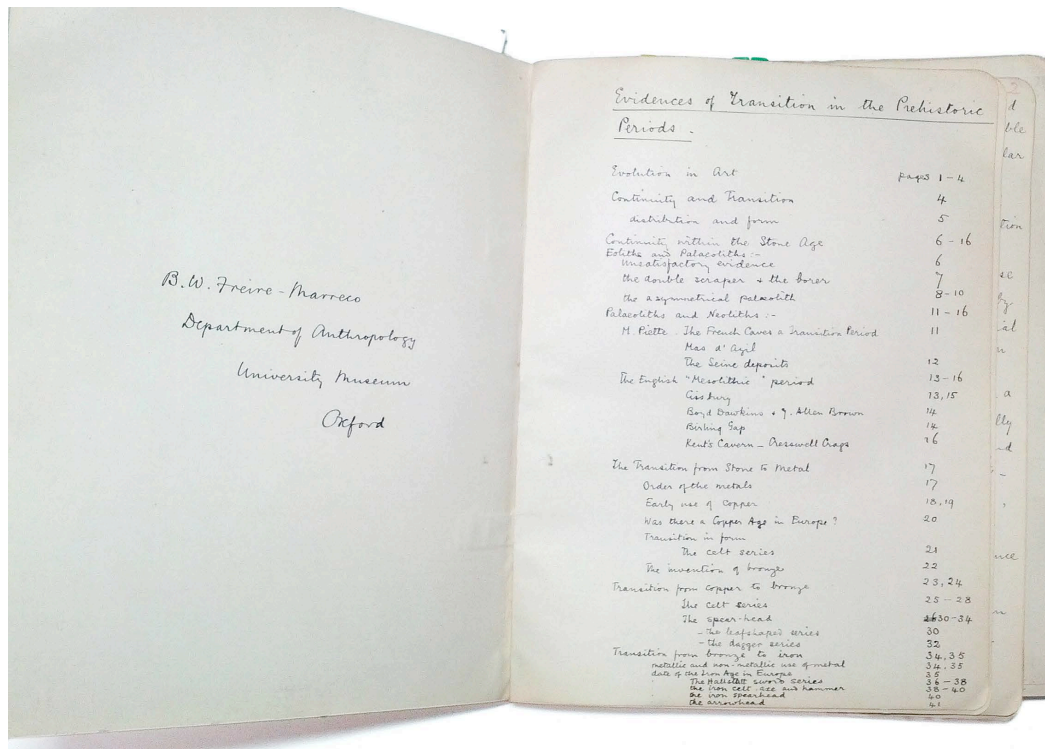 B. W. Freire-Marreco
Department of Anthropology
University Museum
Oxford
Evidences of Transition in the Prehistoric
Periods.
Evolution in Art pages 1-4
Continuity and Transition 4
distribution and form 5
Continuity within the Stone Age 6-16
Eoliths and Palaeoliths :-
Unsatisfactory evidence 6
the double scraper & the borer 7
the asymmetrical palaeolith 8-10
Palaeoliths and Neoliths :- 11-16
M. Piette. The French Caves a Transition Period 11
Mas d'Azil
The Seine deposits 12
The English "Mesolithic" period 13-16
Cissbury 13, 15
Boyd Dawkins & J. Allen Brown 14
Birling Gap 14
Kent's Cavern - Cresswell Crags 16
The Transition from Stone to Metal 17
Order of the metals 17
Early use of Copper 18, 19
Was there a Copper Age in Europe? 20
Transition in form
The celt series 21
The invention of bronze 22
Transition from copper to bronze 23, 24
The celt series 25-28
The spear-head 30-34
- the leafshaped series 30
- the dagger series 32
Transition from bronze to iron 34, 35
metallic and non-metallic use of metal 34, 35
date of the Iron Age in Europe 35
The Hallstatt sword series 36-38
the iron celt axe and hammer 38-40
the iron spearhead 40
the arrowhead 41
2
d
ble
lar
tion
se
ial
a
lly
nd